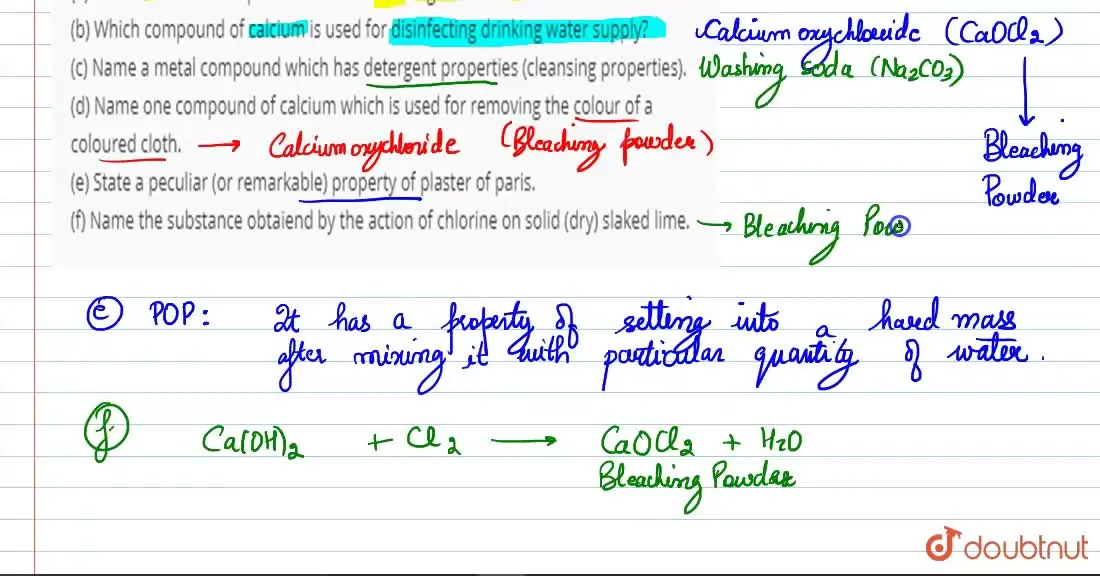 (b) Which compound of calcium is used for disinfecting drinking water supply? Calcium oxychloride (CaOCl2)
(c) Name a metal compound which has detergent properties (cleansing properties). Washing Soda (Na2CO3)
(d) Name one compound of calcium which is used for removing the colour of a
coloured cloth. → Calcium oxychloride (Bleaching powder)
Bleaching
Powder
(e) State a peculiar (or remarkable) property of plaster of paris.
(f) Name the substance obtaiend by the action of chlorine on solid (dry) slaked lime. → Bleaching Pow
(e) POP: It has a property of setting into a hard mass
after mixing it with particular quantity of water.
(f) Ca(OH)2 + Cl2 → CaOCl2 + H2O
Bleaching Powder
doubtnut